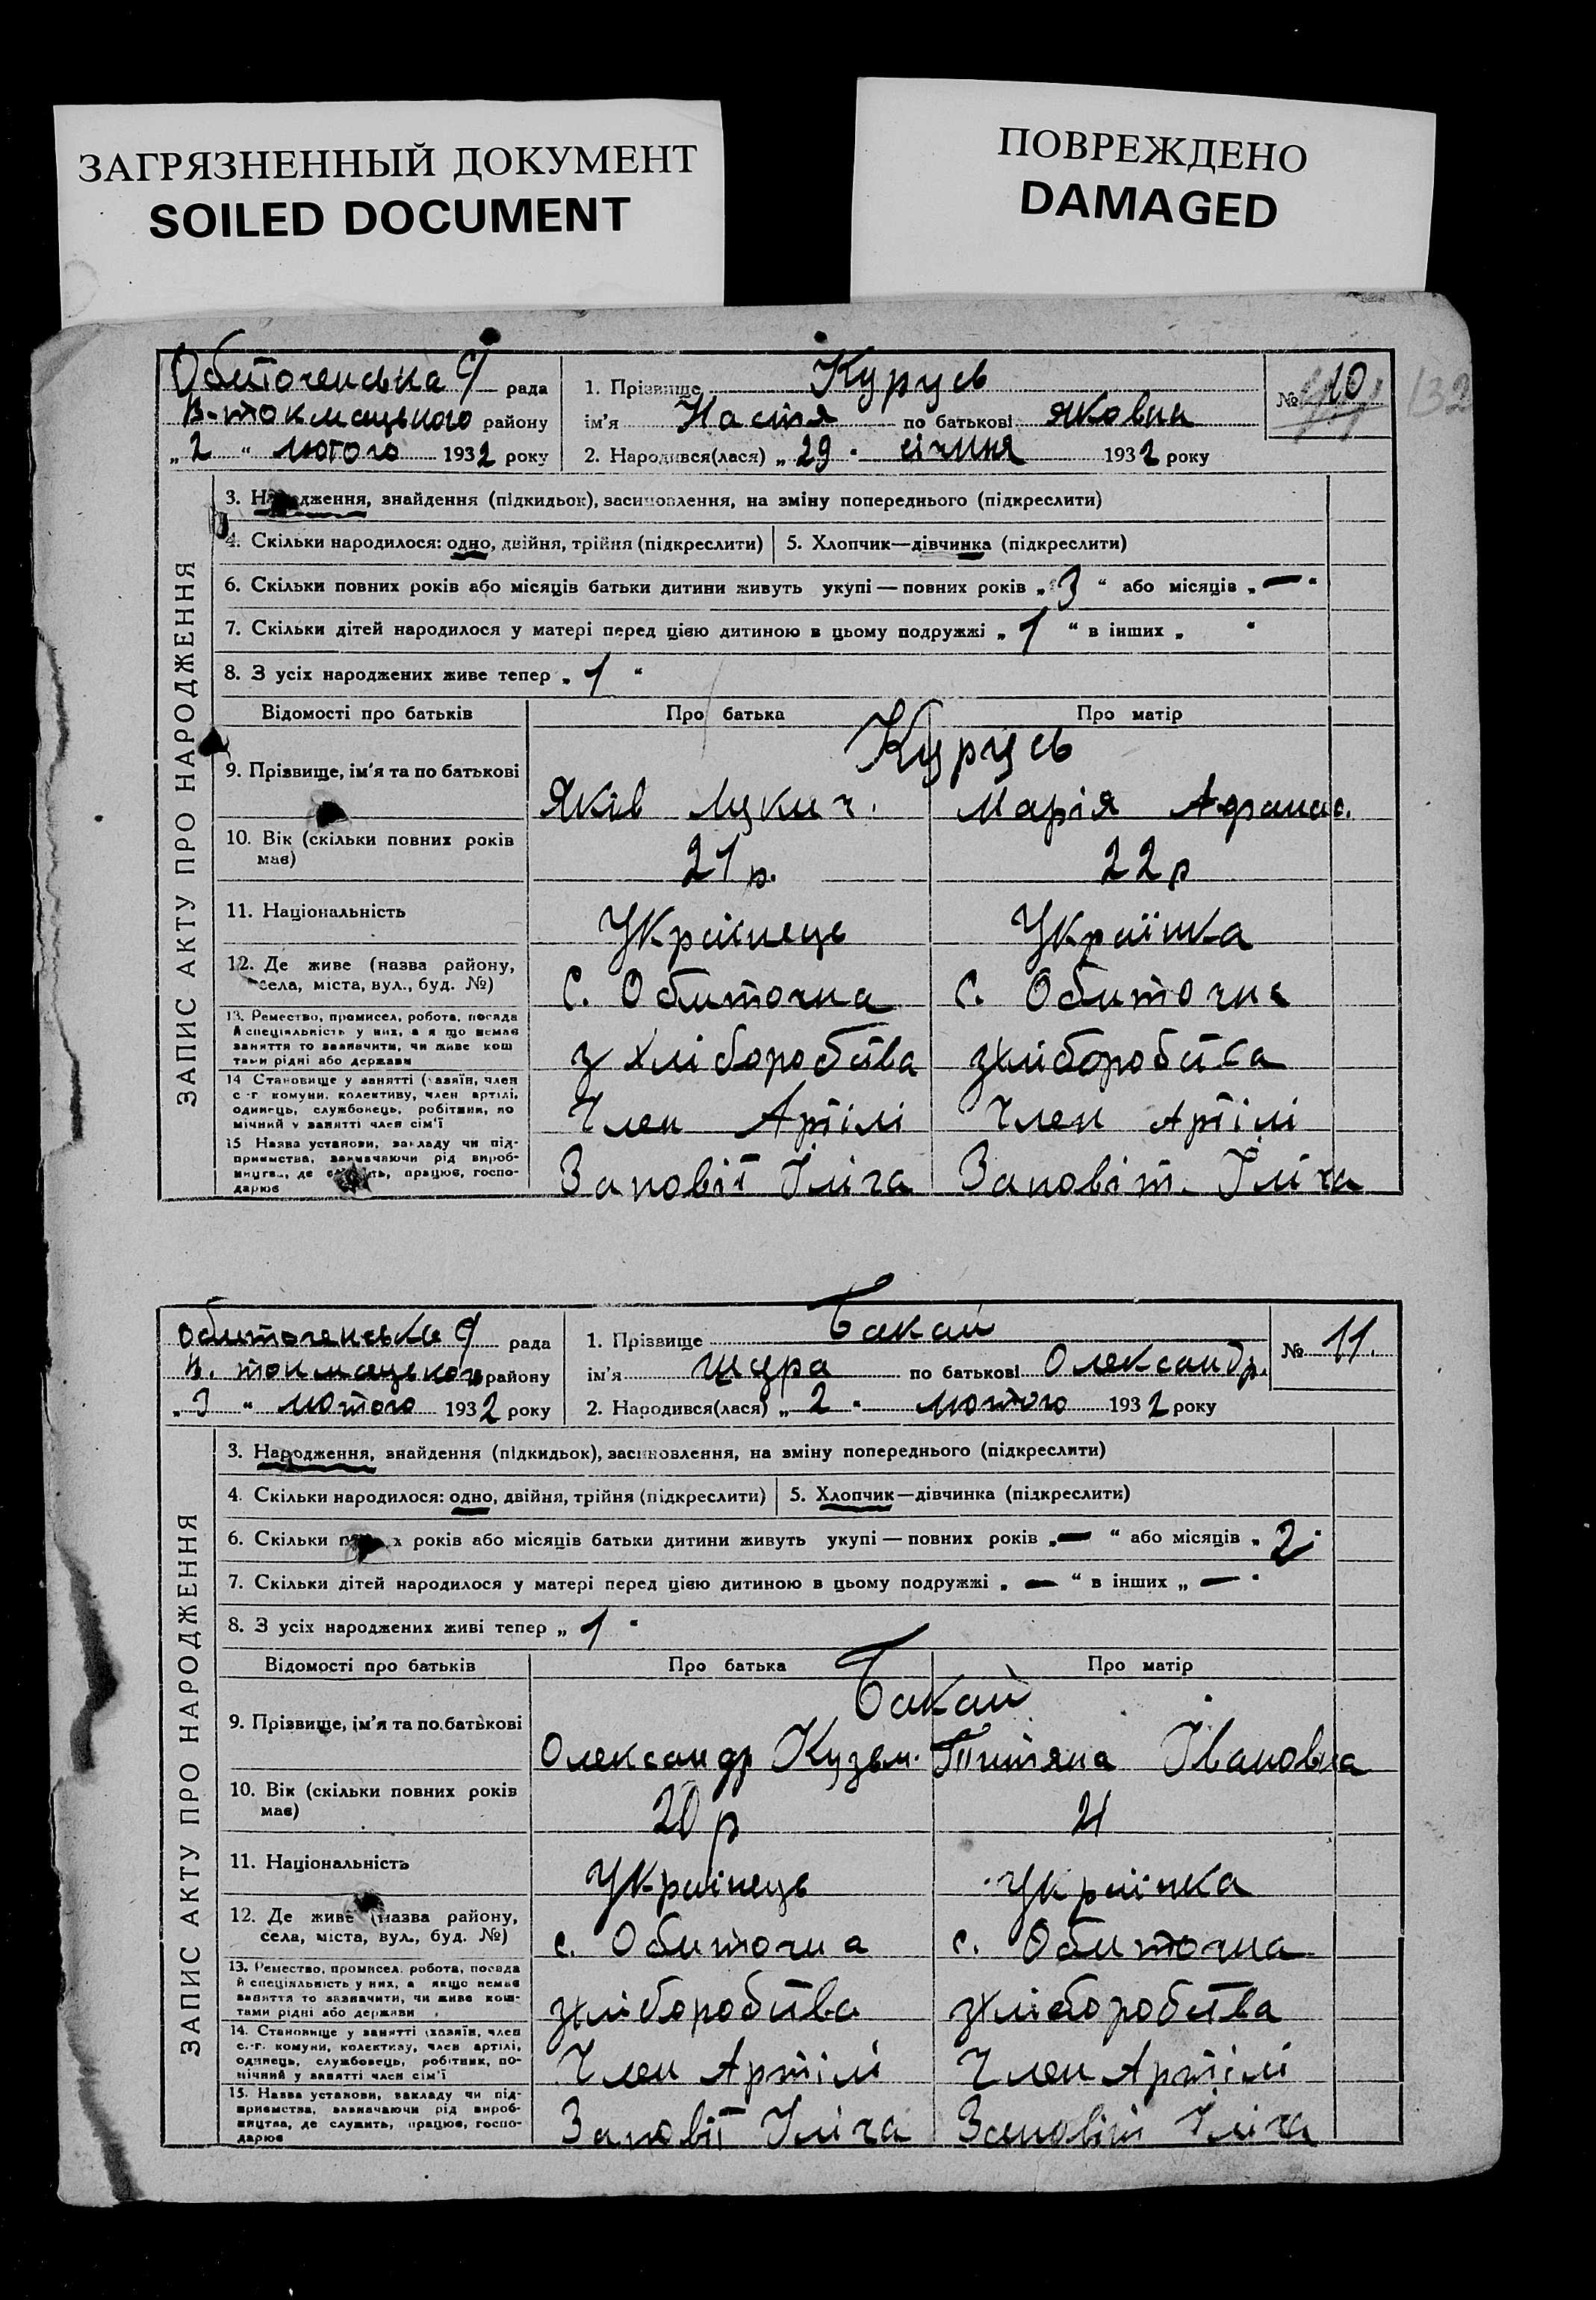 ЗАГРЯЗНЕННЫЙ ДОКУМЕНТ
SOILED DOCUMENT
ПОВРЕЖДЕНО
DAMAGED
132
ЗАПИС АКТУ ПРО НАРОДЖЕННЯ
Обиточенська с/ рада
В-токмацького району
„2“ лютого 1932 року
1. Прізвище Курусь
ім'я Настя по батькові Яковна
2. Народився(лася) „29“ січння 1932 року
№ 10
3. Народження, знайдення (підкидьок), засиновлення, на зміну попереднього (підкреслити)
4. Скільки народилося: одно, двійня, трійня (підкреслити) 5. Хлопчик—дівчинка (підкреслити)
6. Скільки повних років або місяців батьки дитини живуть укупі — повних років „3“ або місяців „—“
7. Скільки дітей народилося у матері перед цією дитиною в цьому подружжі „1“ в інших „ “
8. З усіх народжених живе тепер „1“
Відомості про батьків Про батька Про матір
Курусь
9. Прізвище, ім'я та по батькові Яків Лукич. Марія Афанас.
10. Вік (скільки повних років має) 21 р. 22 р
11. Національність Українець Українка
12. Де живе (назва району, села, міста, вул., буд. №) с. Обиточна с. Обиточна
13. Ремество, промисел, робота, посада й спеціяльність у них, а якщо немає заняття то зазначити, чи живе коштами рідні або держави з хліборобства зхліборобства
14 Становище у занятті (хазяїн, член с.-г. комуни, колективу, член артілі, одинець, службовець, робітник, помічний у занятті член сім'ї Член Артілі Член Артілі
15 Назва установи, закладу чи підприємства, зазначаючи рід виробництва, де служить, працює, господарює Заповіт Іліча Заповіт. Іліча
ЗАПИС АКТУ ПРО НАРОДЖЕННЯ
Обиточенська с/ рада
В. токмацького району
„3“ лютого 1932 року
1. Прізвище Бакай
ім'я Шура по батькові Олександр.
2. Народився(лася) „2“ лютого 1932 року
№ 11.
3. Народження, знайдення (підкидьок), засиновлення, на зміну попереднього (підкреслити)
4. Скільки народилося: одно, двійня, трійня (підкреслити) 5. Хлопчик—дівчинка (підкреслити)
6. Скільки повних років або місяців батьки дитини живуть укупі — повних років „—“ або місяців „2“
7. Скільки дітей народилося у матері перед цією дитиною в цьому подружжі „—“ в інших „—“
8. З усіх народжених живі тепер „1“
Відомості про батьків Про батька Про матір
Бакай
9. Прізвище, ім'я та по батькові Олександр Кузьм. Титяна Івановна
10. Вік (скільки повних років має) 20 р 21
11. Національність Українець Українка
12. Де живе (назва району, села, міста, вул., буд. №) с. Обиточна с. Обиточна
13. Ремество, промисел, робота, посада й спеціяльність у них, а якщо немає заняття то зазначити, чи живе коштами рідні або держави зхліборобства зхліборобства
14. Становище у занятті (хазяїн, член с.-г. комуни, колективу, член артілі, одинець, службовець, робітник, помічний у занятті член сім'ї Член Артілі Член Артілі
15. Назва установи, закладу чи підприємства, зазначаючи рід виробництва, де служить, працює, господарює Заповіт Іліча Заповіт Іліча